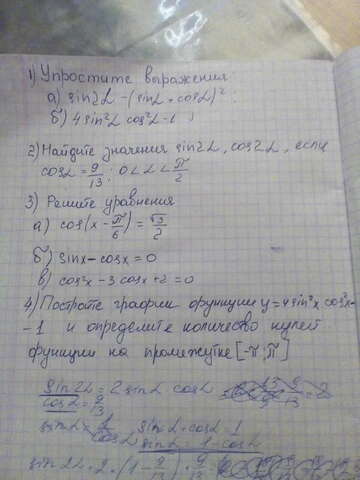 1) Упростите выражения
а) sin2α - (sinα + cosα)²;
б) 4 sin²α cos²α - 1;
2) Найдите значения sin2α, cos2α, если
cosα = 9/13; 0 < α < π/2
3) Решите уравнения
а) cos(x - π/6) = √3/2
б) sinx - cosx = 0
в) cos²x - 3cosx + 2 = 0
4) Постройте график функции y = 4 sin²x cos²x -
- 1 и определите количество нулей
функции на промежутке [-π; π]
sin2α = 2 sinα cosα
cosα = 9/13
sinα + cosα = 1
sinα = 1 - cosα
sin2α = 2 · (1 - 9/13) · 9/13